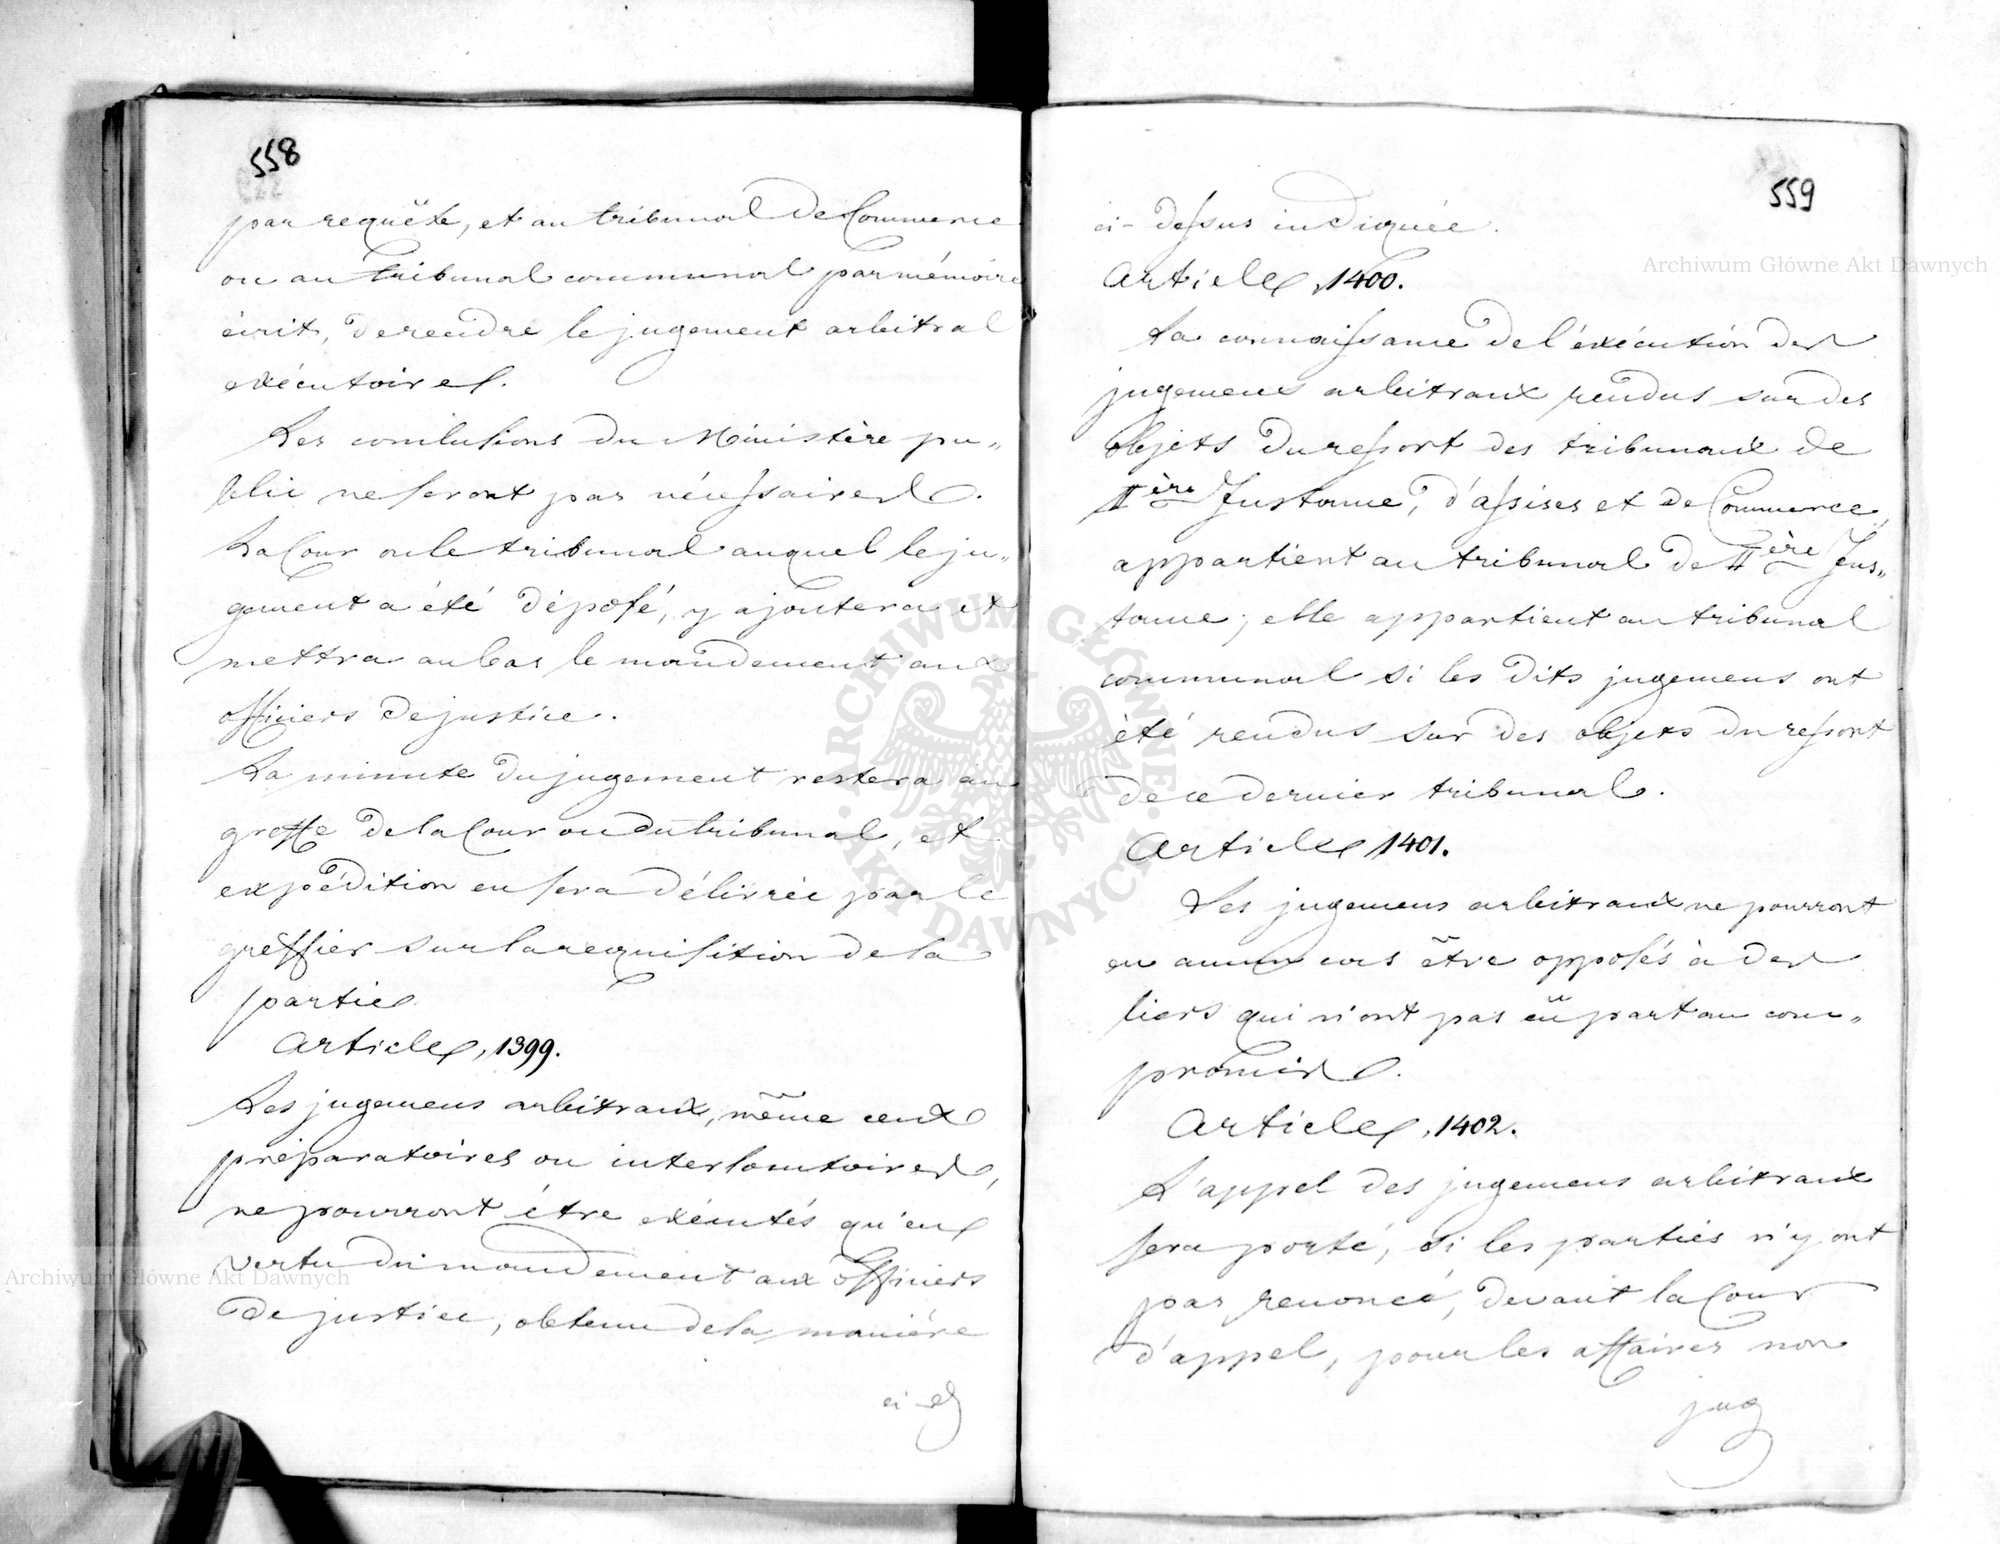 558
par requête, et au tribunal de Commerce
ou au tribunal communal par mémoire
écrit, de rendre le jugement arbitral
exécutoire.
Les conclusions du Ministère pu„
blic ne seront pas nécessaires.
La Cour ou le tribunal auquel le ju„
gement a été déposé, y ajoutera et
mettra au bas le mandement aux
officiers de justice.
La minute du jugement restera au
greffe de la Cour ou du tribunal, et
expédition en sera délivrée par le
greffier sur la requisition de la
partie
Article, 1399.
Les jugemens arbitraux, même ceux
préparatoires ou interlocutoires,
ne pourront être exécutés qu'en
vertu du mandement aux officiers
de justice, obtenu de la manière
ci-d
559
ci-dessus indiquée.
Article, 1400.
La connaissance de l'éxécution des
jugemens arbitraux rendus sur des
objets du ressort des tribunaux de
Ière Instance, d'assises et de Commerce,
appartient au tribunal de Ière Ins„
tance; elle appartient au tribunal
communal si les dits jugemens ont
été rendus sur des objets du ressort
de ce dernier tribunal.
Article 1401.
Les jugemens arbitraux ne pourront
en aucun cas être opposés à des
tiers qui n'ont pas eü part au com„
promis.
Article, 1402.
L'appel des jugemens arbitraux
sera porté, si les parties n'y ont
pas renoncé, devant la Cour
d'appel, pour les affaires non
jug
Archiwum Główne Akt Dawnych
Archiwum Główne Akt Dawnych
ARCHIWUM GŁÓWNE · AKT DAWNYCH ·